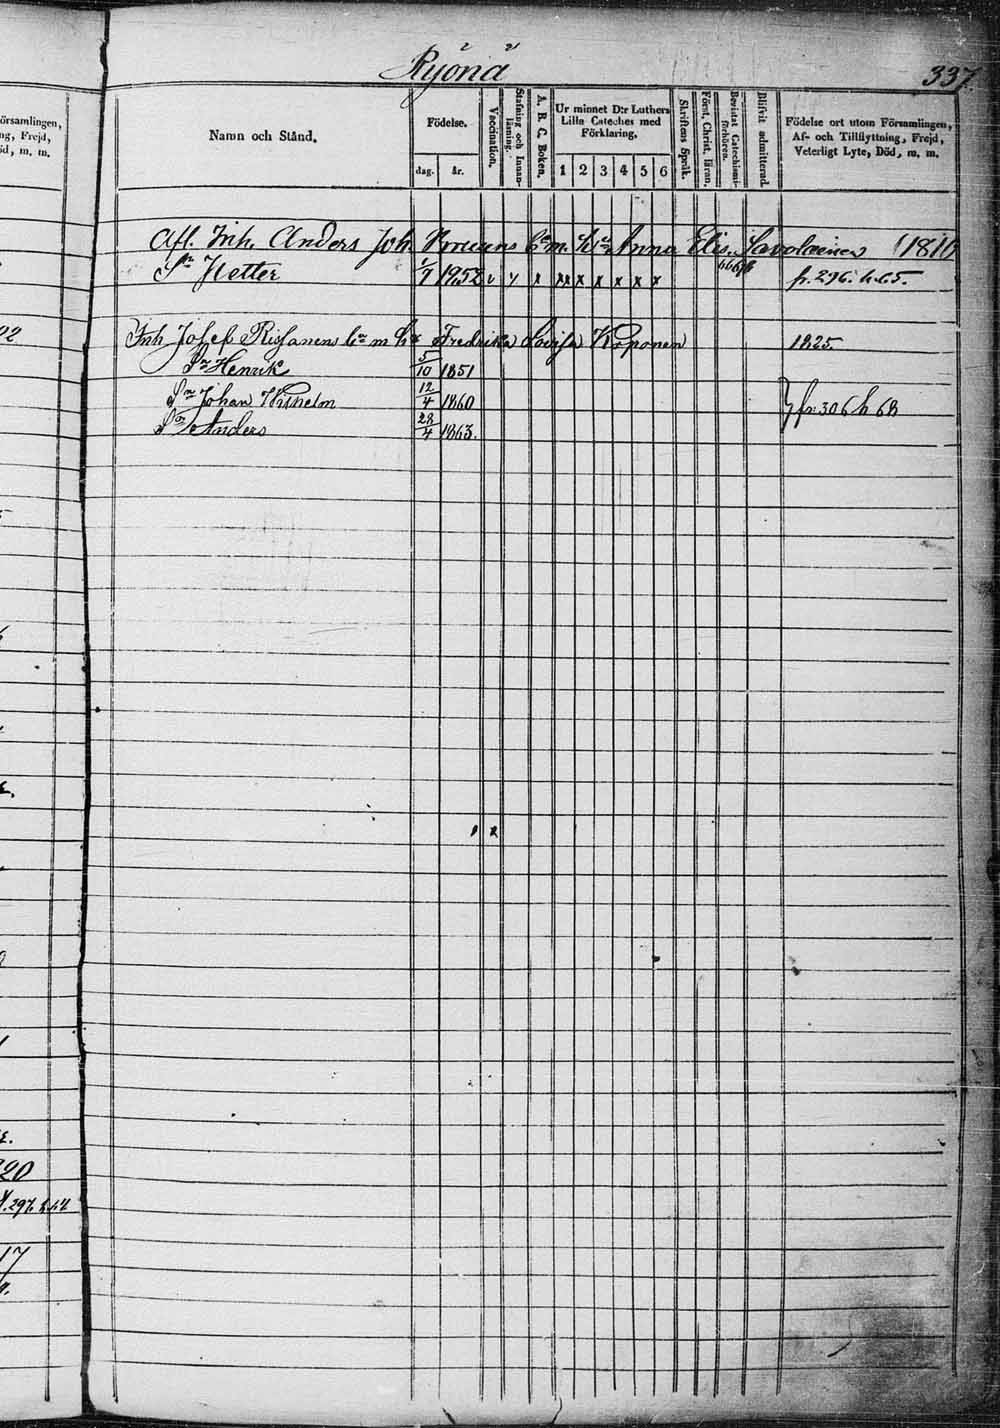 Ryönä
337.
örsamlingen,
ng, Frejd,
öd, m. m.
Namn och Stånd.
Födelse.
dag. år.
Vaccination.
Stafning och Innan-läsning.
A. B. C. Boken.
Ur minnet D:r Luthers Lilla Cateches med Förklaring.
1 2 3 4 5 6
Skriftens Språk.
Först. Christ. läran.
Bevistat Catechismi-förhören.
Blifvit admitterad.
Födelse ort utom Församlingen, Af- och Tillflyttning, Frejd, Veterligt Lyte, Död, m. m.
Afl. Inh. Anders Joh. Anna Elis. Savolainen (1810)
Sr Petter 1/7 1852 v y x xx x x x x x fr. 296. h. 65.
Inh Josef Rissanens br m h Fredrika Lovisa Koponen 1825.
Sr Henrik 5/10 1851
Sr Johan Wilhelm 12/4 1860 fr 306 h 68
Sr Anders 28/4 1863.